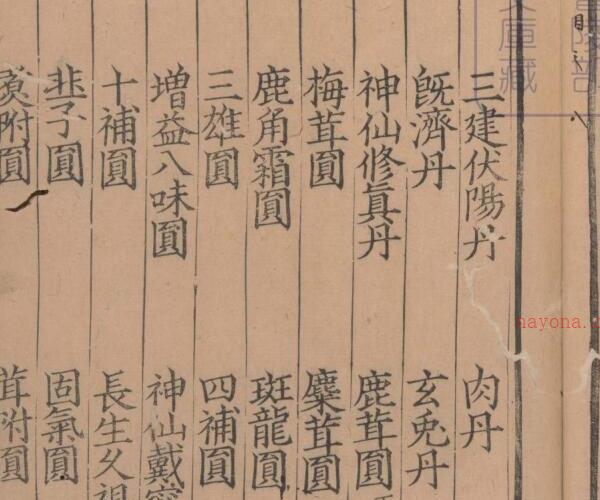 三建伏陽丹
肉丹
既濟丹
玄兎丹
神仙修眞丹
鹿茸圓
梅茸圓
麋茸圓
鹿角霜圓
斑龍圓
三雄圓
四補圓
增益八味圓
神仙戴
十補圓
長生久視
韭子圓
固氣圓
附圓
茸附圓
庫藏
目
八
nayona.